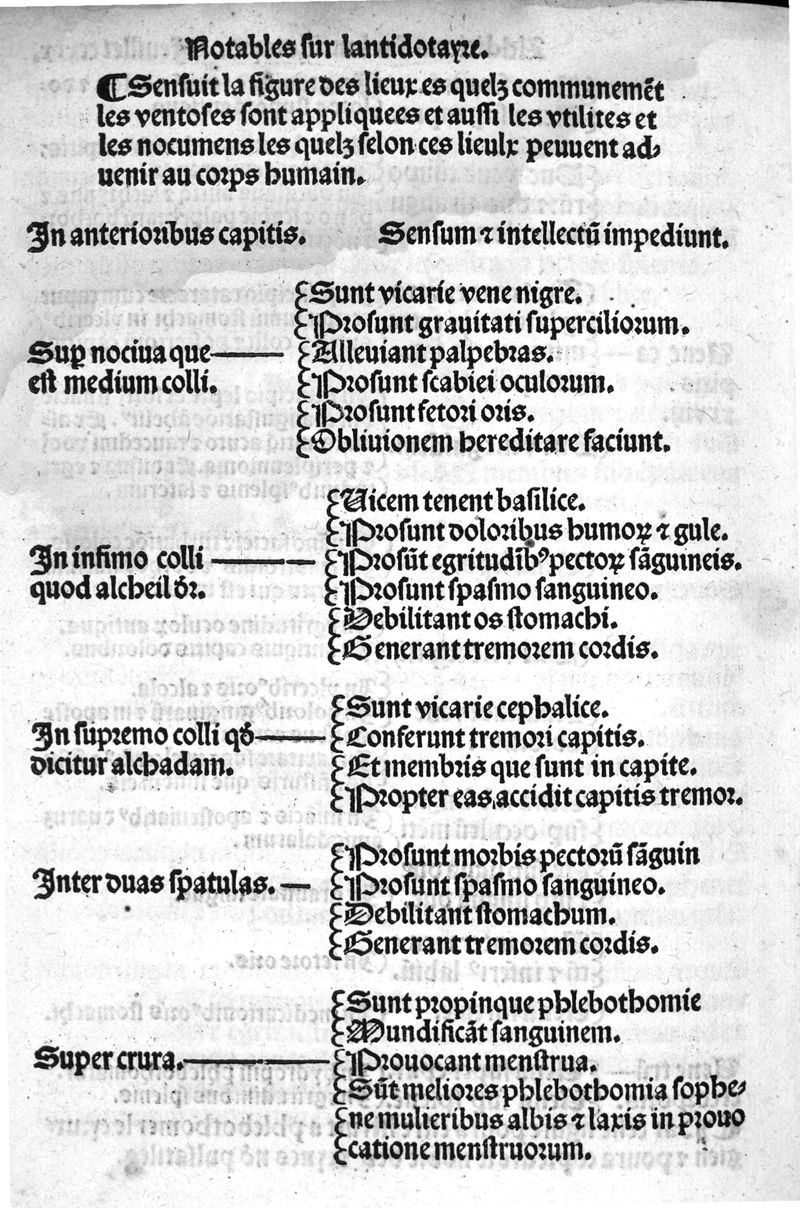 Notables sur lantidotayre.
¶ Sensuit la figure des lieux es quelz communemēt
les ventoses sont appliquees et aussi les vtilites et
les nocumens les quelz selon ces lieulx peuuent ad⸗
uenir au corps humain.
In anterioribus capitis. Sensum ⁊ intellectū impediunt.
Sunt vicarie vene nigre.
Prosunt grauitati superciliorum.
Suꝑ nociua que Alleuiant palpebras.
est medium colli. Prosunt scabiei oculorum.
Prosunt fetori oris.
Obliuionem hereditare faciunt.
Uicem tenent basilice.
Prosunt doloribus humoꝝ ⁊ gule.
In infimo colli Prosūt egritudīb⁹ pectoꝝ sāguineis.
quod alcheil dr̄. Prosunt spasmo sanguineo.
Debilitant os stomachi.
Generant tremorem cordis.
Sunt vicarie cephalice.
In supremo colli qd̄ Conferunt tremori capitis.
dicitur alchadam. Et membris que sunt in capite.
Propter eas accidit capitis tremor.
Prosunt morbis pectorū sāguin
Inter duas spatulas. Prosunt spasmo sanguineo.
Debilitant stomachum.
Generant tremorem cordis.
Sunt propinque phlebothomie
Mundificāt sanguinem.
Super crura. Prouocant menstrua.
Sūt meliores phlebothomia sophe⸗
ne mulieribus albis ⁊ laxis in prouo
catione menstruorum.